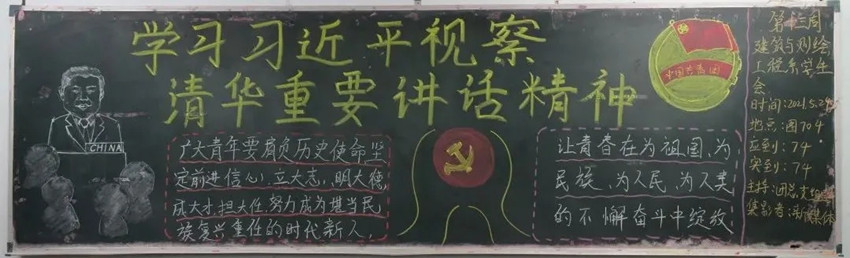 学习习近平视察
清华重要讲话精神
CHINA
广大青年要肩负历史使命坚
定前进信心,立大志、明大德
成大才、担大任努力成为堪当民
族复兴重任的时代新人,
让青春在为祖国、为
民族、为人民、为人类
的不懈奋斗中绽放
中国共青团
第十三周
建筑与测绘
工程系学生
会
时间:2021.5.2
地点:图704
应到:74
实到:74
主持:团总支